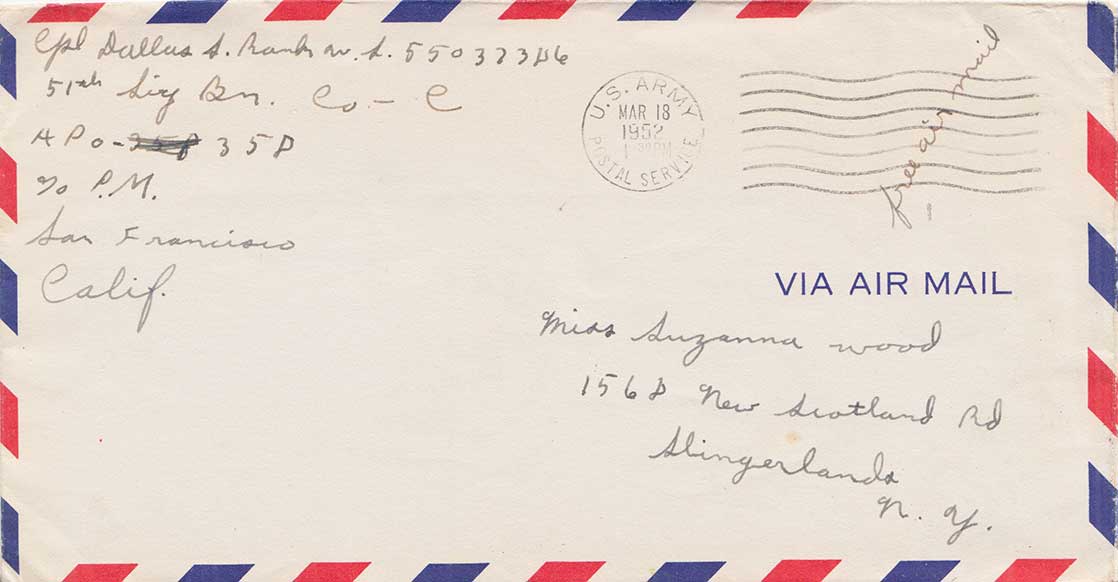 Cpl Dallas S. Rank U.S. 55037386
51st Sig Bn. Co - C
APO - 358
c/o P.M.
San Francisco
Calif.
U.S. ARMY
MAR 18
1952
1 30 PM
POSTAL SERVICE
free air mail
VIA AIR MAIL
Miss Suzanna Wood
1568 New Scotland Rd
Slingerlands
N. Y.